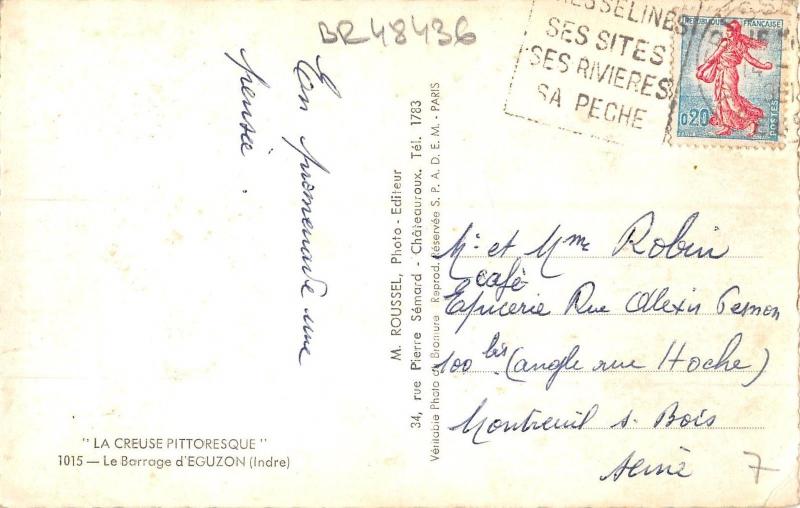 BR48436
SES SITES
SES RIVIERES
SA PECHE
REPUBLIQUE FRANÇAISE
0,20
POSTES
En promenade une
pensée.
M. ROUSSEL, Photo - Editeur
34, rue Pierre Sémard - Châteauroux. Tél. 1783
Véritable Photo au Bromure Reprod. Réservée S. P. A. D. E. M. - PARIS
Mr et Mme Robin
café
Epicerie Rue Alexis Pesnon
100 bis (angle rue Hoche)
Montreuil s. Bois
Seine
7
" LA CREUSE PITTORESQUE "
1015 — Le Barrage d'EGUZON (Indre)